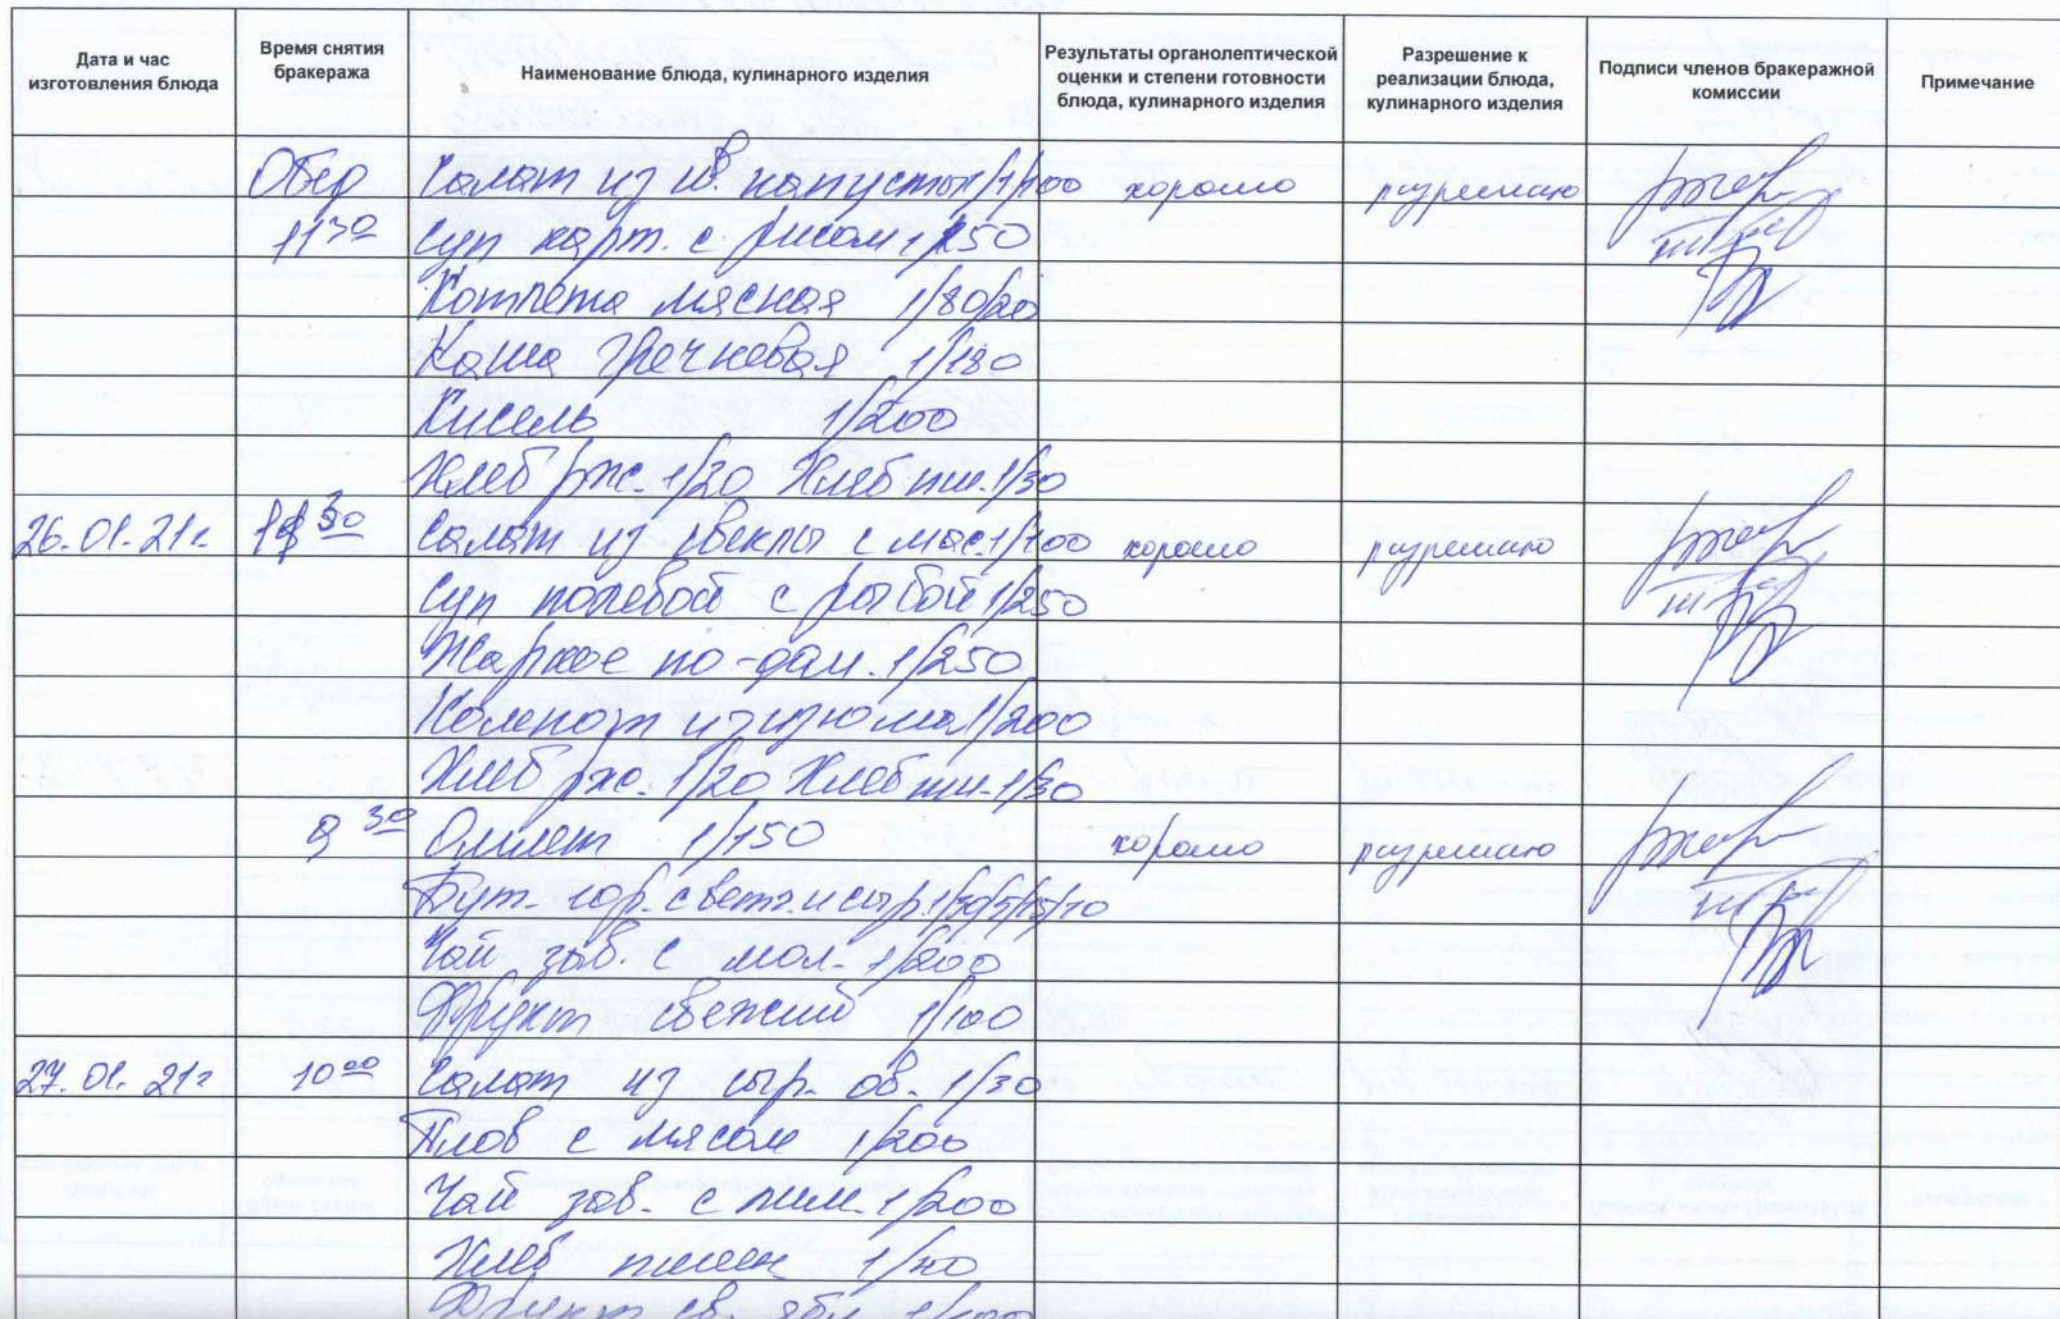 Дата и час изготовления блюда
Время снятия бракеража
Наименование блюда, кулинарного изделия
Результаты органолептической оценки и степени готовности блюда, кулинарного изделия
Разрешение к реализации блюда, кулинарного изделия
Подписи членов бракеражной комиссии
Примечание
Обед Салат из св. капусты 1/100 хорошо разрешаю
11 30 Суп карт. с рисом 1/250
Котлета мясная 1/80/20
Каша гречневая 1/180
Кисель 1/200
Хлеб рж. 1/20 Хлеб пш. 1/30
26.01.21г 30 Салат из свеклы с мас. 1/100 хорошо разрешаю
Суп полевой с рыбой 1/250
Жаркое по-дом. 1/250
Компот из изюма 1/200
Хлеб рж. 1/20 Хлеб пш. 1/30
9 30 Омлет 1/150 хорошо разрешаю
Бут. гор. с ветч. и сыр. 1/30/5/15/10
Чай зав. с мол. 1/200
Фрукт свежий 1/100
27.01.21г 10 00 Салат из сыр. ов. 1/30
Плов с мясом 1/200
Чай зав. с лим. 1/200
Хлеб пшен 1/40
Фрукт св. ябл 1/100